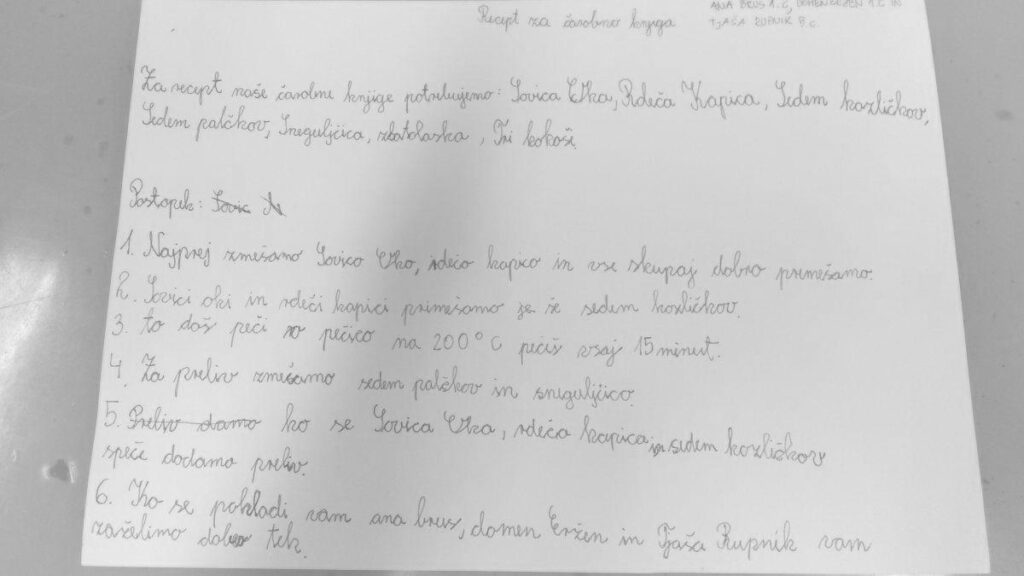 Recept za čarobno knjiga
ANA BRUS 1.C, DOMEN ERŽEN 1.C IN
TJAŠA RUPNIK 8.C
Za recept naše čarobne knjige potrebujemo: Sovica Oka, Rdeča Kapica, Sedem kozličkov,
Sedem palčkov, Sneguljčica, zlatolaska, Tri kokoši.
Postopek: Sovic N
1. Najprej zmešamo Sovico Oko, rdečo kapico in vse skupaj dobro premešamo.
2. Sovici oki in rdeči kapici primešamo za še sedem kozličkov.
3. to daš peči v pečico na 200°C pečeš vsaj 15 minut.
4. Za preliv zmešamo sedem palčkov in sneguljčico.
5. Preliv damo ko se Sovica Oka, rdeča kapica in sedem kozličkov
speče dodamo preliv.
6. Ko se pohladi vam ana brus, domen Eržen in Tjaša Rupnik vam
zaželimo dober tek.